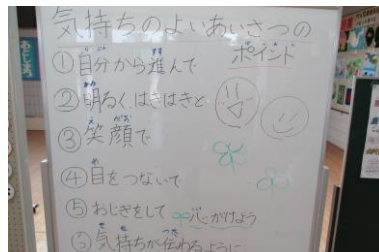 気持ちのよいあいさつの
ポイント
①自分から進んで
②明るく、はきはきと
③笑顔で
④目をつないで
⑤おじぎをして
心がけよう
⑥気持ちが伝わるように